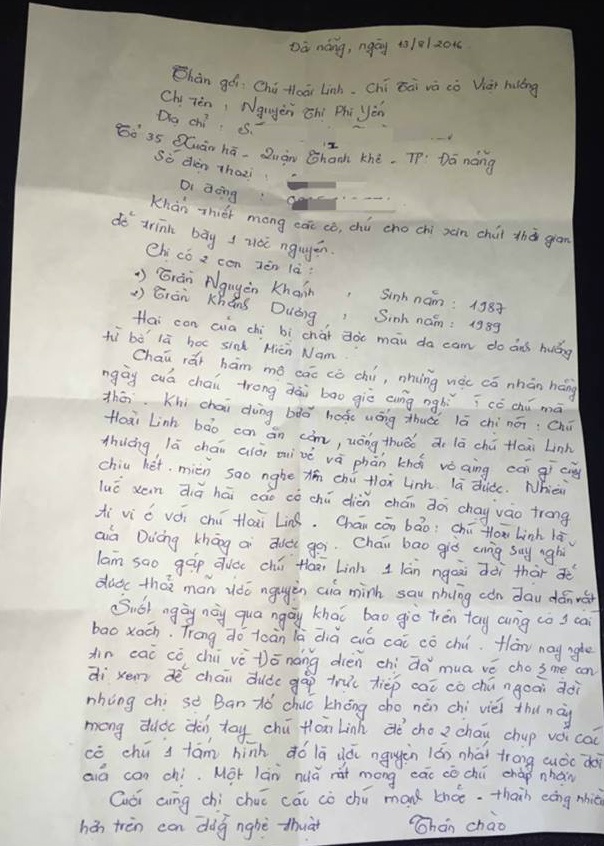 Đà nẵng, ngày 13/8/2016
Thân gởi: Chú Hoài Linh - Chí Tài và cô Việt hương
Chị tên : Nguyễn Thị Phi Yến
Địa chỉ : S.
Tổ 35 Xuân hà - Quận Thanh khê - TP: Đà nẵng
Số điện thoại :
Di động :
Khẩn thiết mong các cô, chú cho chị xin chút thời gian
để trình bày 1 ước nguyện.
Chị có 2 con tên là :
1) Trần Nguyên Khanh , Sinh năm : 1987
2) Trần Khánh Dương , Sinh năm : 1989
Hai con của chị bị chất độc màu da cam do ảnh hưởng
từ bố là học sinh Miền Nam.
Cháu rất hâm mộ các cô chú, những việc cá nhân hằng
ngày của cháu trong đầu bao giờ cũng nghĩ cô chú mà
thôi. Khi cháu dùng bữa hoặc uống thuốc là chị nói : Chú
Hoài Linh bảo con ăn cơm, uống thuốc đi là chú Hoài Linh
thương là cháu cười vui vẻ và phấn khởi vô cùng cái gì cũng
chịu hết. miễn sao nghe tên chú Hoài Linh là được. Nhiều
lúc xem đĩa hài các cô chú diễn cháu đòi chạy vào trong
ti vi ở với chú Hoài Linh. Cháu còn bảo: chú Hoài Linh là
của Dương không ai được gọi. Cháu bao giờ cũng suy nghĩ
làm sao gặp được chú Hoài Linh 1 lần ngoài đời thật để
được thỏa mãn ước nguyện của mình sau những cơn đau dớn vật
Suốt ngày này qua ngày khác bao giờ trên tay cũng có 1 cái
bao xách. Trong đó toàn là đĩa của các cô chú. Hôm nay nghe
tin các cô chú về Đà nẵng diễn chị đã mua vé cho 3 mẹ con
đi xem để cháu được gặp trực tiếp các cô chú ngoài đời
nhưng chị sợ Ban tổ chức không cho nên chị viết thư này
mong được đến tay chú Hoài Linh để cho 2 cháu chụp với các
cô chú 1 tấm hình đó là ước nguyện lớn nhất trong cuộc đời
của con chị. Một lần nữa rất mong các cô chú chấp nhận
Cuối cùng chị chúc các cô chú mạnh khỏe - thành công nhiều
hơn trên con đường nghệ thuật Thân chào